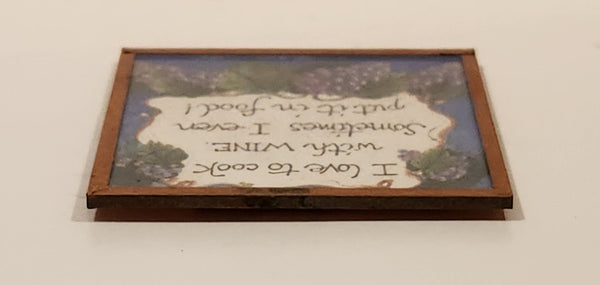 I love to cook
with WINE.
Sometimes I even
put it in food!